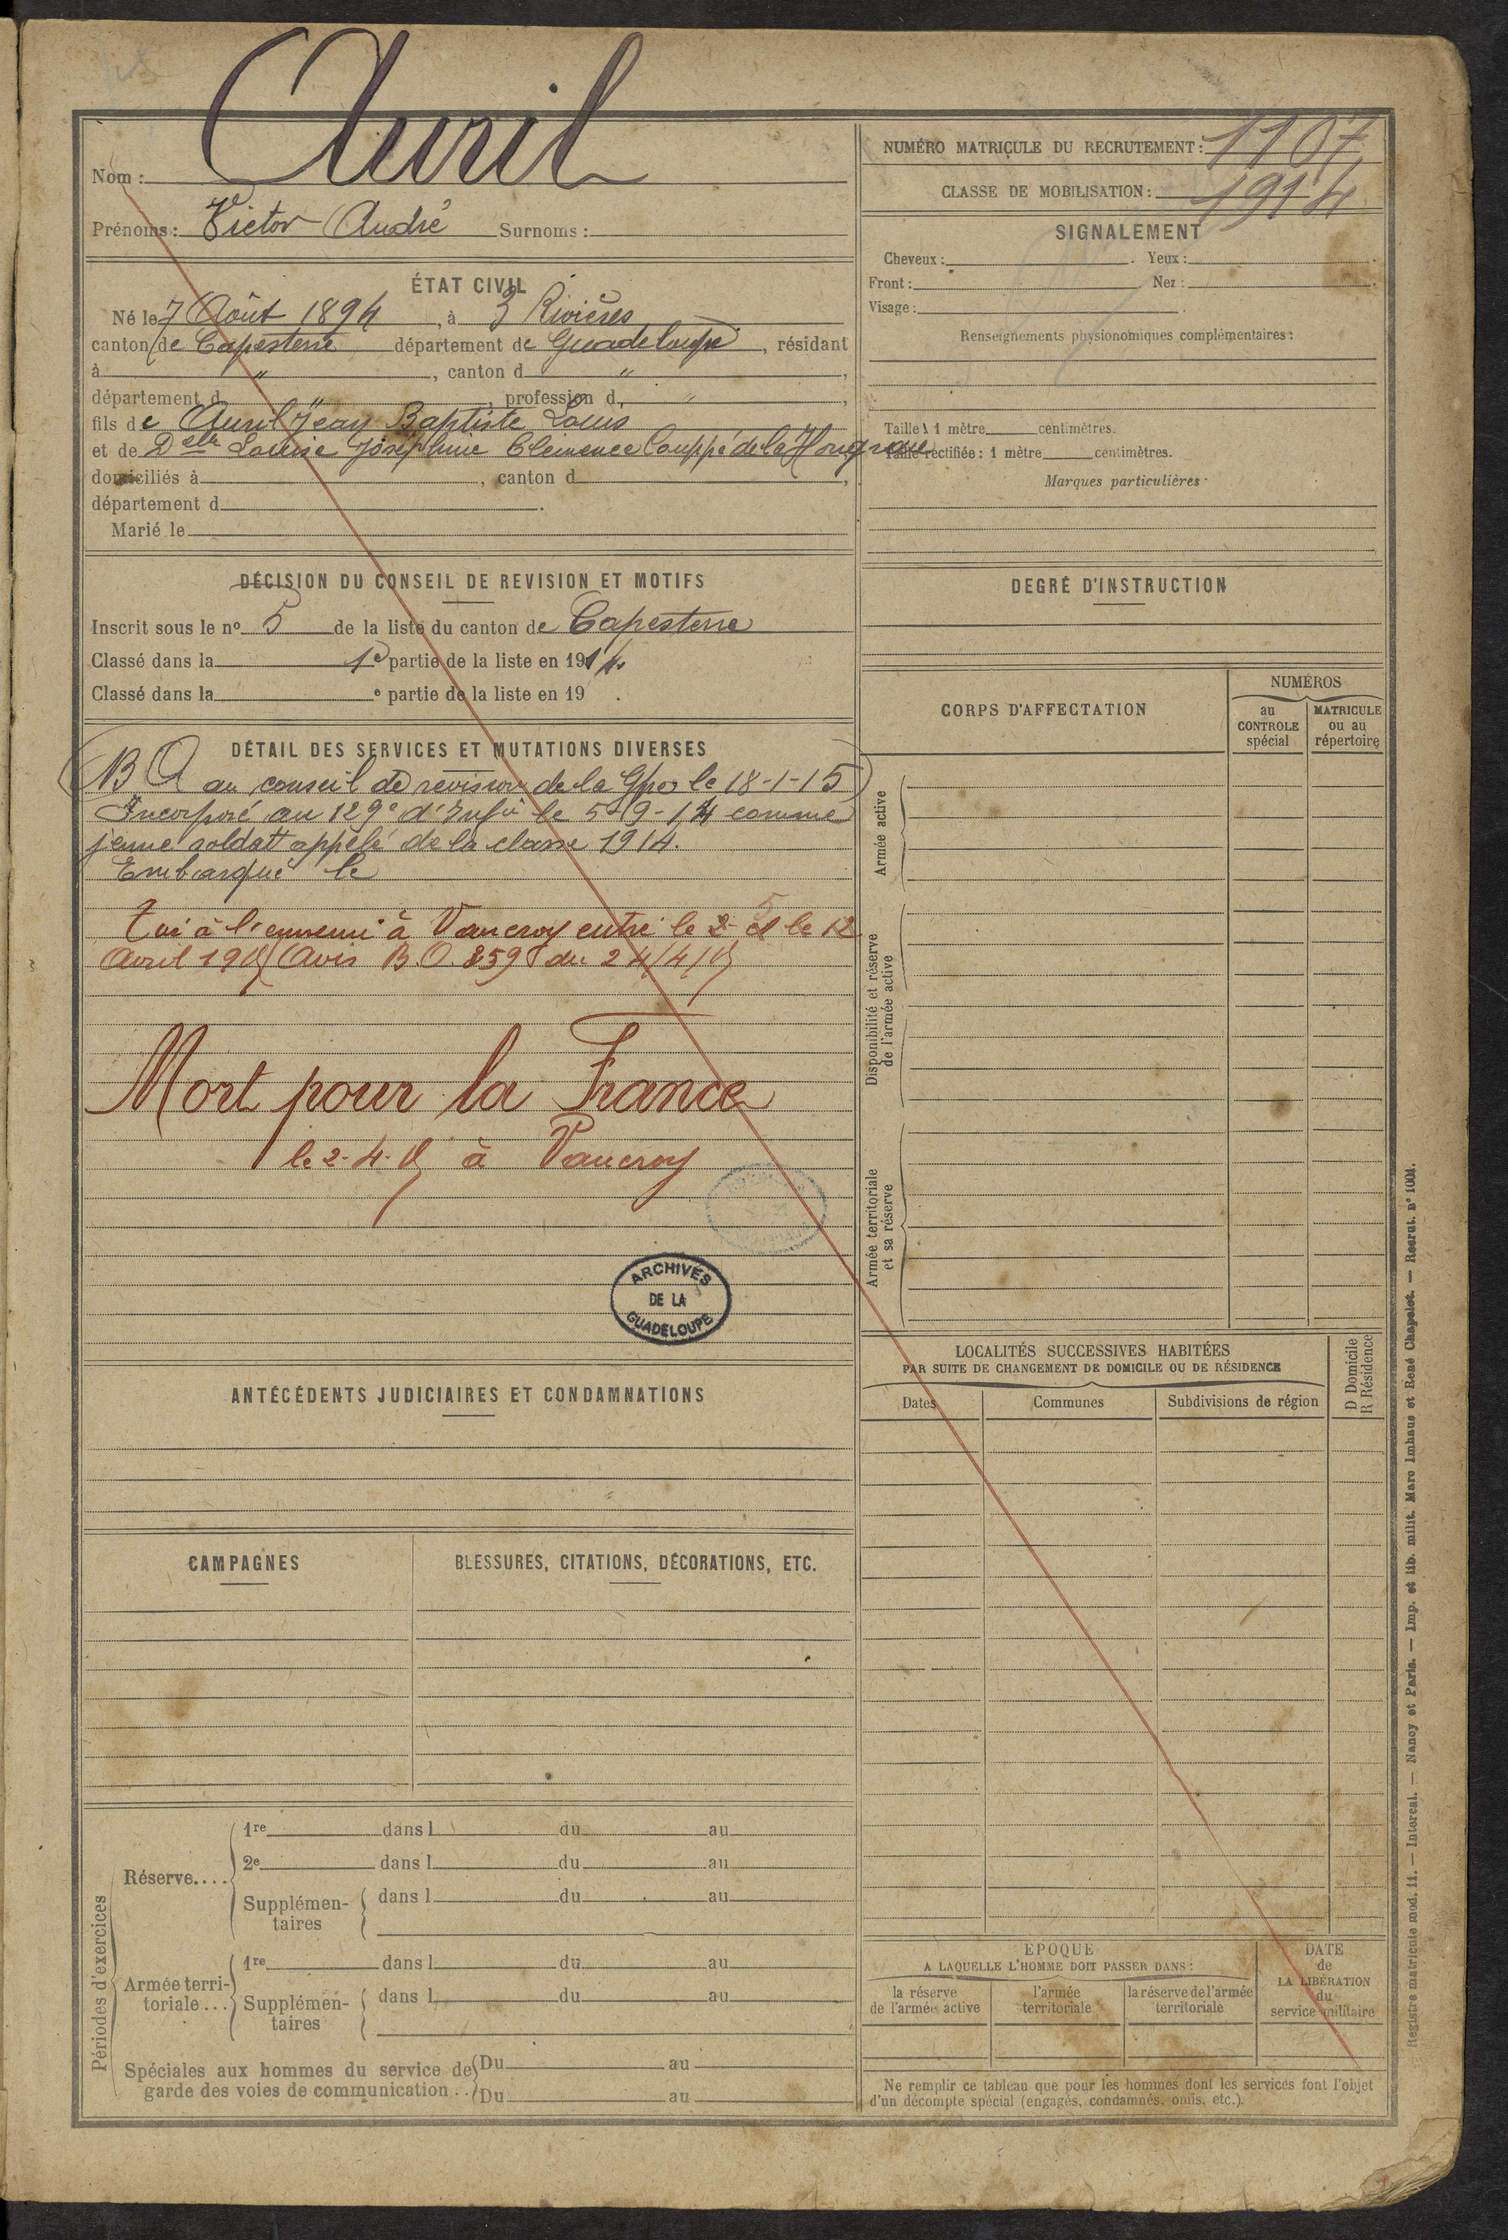 Nom : Avril
Prénoms : Victor André Surnoms :
ÉTAT CIVIL
Né le 7 Août 1894, à 3 Rivières
canton de Capesterre département de Guadeloupe, résidant
à " , canton d "
département d " , profession d "
fils de Avril Jean Baptiste Louis
et de Delle Louise Joséphine Clémence Couppé de la Hongrais
domiciliés à , canton d ,
département d .
Marié le
DÉCISION DU CONSEIL DE REVISION ET MOTIFS
Inscrit sous le no 5 de la liste du canton de Capesterre
Classé dans la 1e partie de la liste en 1914.
Classé dans la e partie de la liste en 19 .
DÉTAIL DES SERVICES ET MUTATIONS DIVERSES
BA au conseil de révision de la Gpe le 18-1-15
Incorporé au 129e d'Infie le 5-9-14 comme
jeune soldat appelé de la classe 1914.
Embarqué le
Tué à l'ennemi à Vaucroy entre le 2 et le 12
Avril 1915 Avis B.O. 8598 du 24/4/15
Mort pour la France
le 2-4-15 à Vaucroy
ARCHIVES
DE LA
GUADELOUPE
ANTÉCÉDENTS JUDICIAIRES ET CONDAMNATIONS
CAMPAGNES
BLESSURES, CITATIONS, DÉCORATIONS, ETC.
Périodes d'exercices
Réserve....
1re dans l du au
2e dans l du au
Supplémen-
taires
dans l du au
Armée terri-
toriale...
1re dans l du au
Supplémen-
taires
dans l du au
Spéciales aux hommes du service de
garde des voies de communication..
Du au
Du au
NUMÉRO MATRICULE DU RECRUTEMENT : 1107
CLASSE DE MOBILISATION : 1914
SIGNALEMENT
Cheveux : . Yeux : .
Front : Nez : .
Visage : .
Renseignements physionomiques complémentaires :
Taille : 1 mètre centimètres.
Taille rectifiée : 1 mètre centimètres.
Marques particulières :
DEGRÉ D'INSTRUCTION
CORPS D'AFFECTATION
NUMÉROS
au
CONTROLE
spécial
MATRICULE
ou au
répertoire
Armée active
Disponibilité et réserve
de l'armée active
Armée territoriale
et sa réserve
LOCALITÉS SUCCESSIVES HABITÉES
PAR SUITE DE CHANGEMENT DE DOMICILE OU DE RÉSIDENCE
D Domicile
R Résidence
Dates
Communes
Subdivisions de région
ÉPOQUE
A LAQUELLE L'HOMME DOIT PASSER DANS :
la réserve
de l'armée active
l'armée
territoriale
la réserve de l'armée
territoriale
DATE
de
LA LIBÉRATION
du
service militaire
Ne remplir ce tableau que pour les hommes dont les services font l'objet
d'un décompte spécial (engagés, condamnés, omis, etc.).
Registre matricule mod. 11. — Intercal. — Nancy et Paris. — Imp. et lib. milit. Marc Imhaus et René Chapelot. — Recrut. n° 1004.